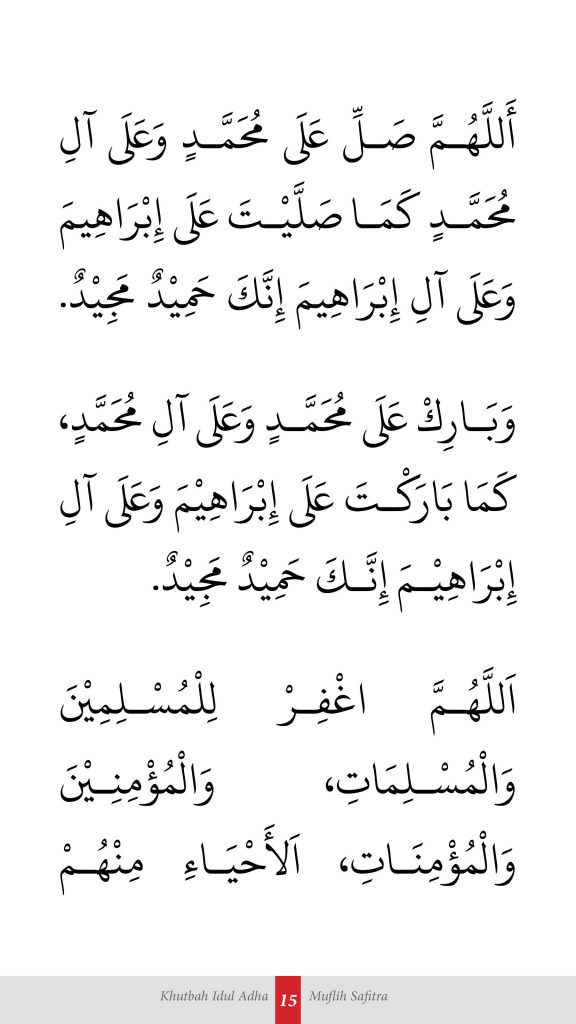 أَللَّهُمَّ صَلِّ عَلَى مُحَمَّدٍ وَعَلَى آلِ
مُحَمَّدٍ كَمَا صَلَّيْتَ عَلَى إِبْرَاهِيمَ
وَعَلَى آلِ إِبْرَاهِيمَ إِنَّكَ حَمِيْدٌ مَجِيْدٌ.
وَبَارِكْ عَلَى مُحَمَّدٍ وَعَلَى آلِ مُحَمَّدٍ،
كَمَا بَارَكْتَ عَلَى إِبْرَاهِيْمَ وَعَلَى آلِ
إِبْرَاهِيْمَ إِنَّكَ حَمِيْدٌ مَجِيْدٌ.
اَللَّهُمَّ اغْفِرْ لِلْمُسْلِمِيْنَ
وَالْمُسْلِمَاتِ، وَالْمُؤْمِنِيْنَ
وَالْمُؤْمِنَاتِ، اَلأَحْيَاءِ مِنْهُمْ
Khutbah Idul Adha 15 Muflih Safitra